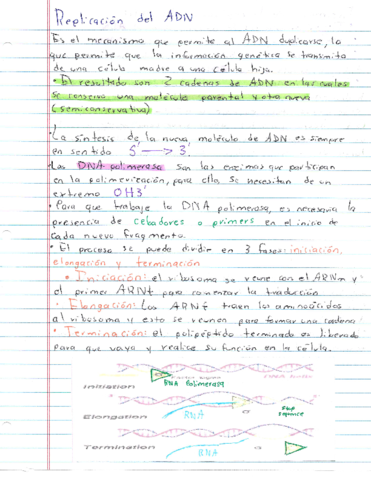 Replicación del ADN
Es el mecanismo que permite al ADN duplicarse, lo
que permite que la información genética se transmita
de una célula madre a una célula hija.
• El resultado son 2 cadenas de ADN en las cuales
se conserva una molécula parental y otra nueva
(semiconservativa)
• La síntesis de la nueva molécula de ADN es siempre
en sentido 5' → 3'.
• Las DNA polimerasa son las enzimas que participan
en la polimerización, para ella se necesitan de un
extremo OH3'
• Para que trabaje la DNA polimerasa, es necesaria la
presencia de cebadores o primers en el inicio de
cada nuevo fragmento.
• El proceso se puede dividir en 3 fases: iniciación,
elongación y terminación
• Iniciación: el ribosoma se reune con el ARNm y
el primer ARNt para comenzar la traducción
• Elongación: Los ARNt traen los aminoácidos
al ribosoma y esto se reunen para formar una cadena
• Terminación: el polipéptido terminado es liberado
para que vaya y realice su función en la célula.
RNA Polimerasa
Initiation
RNA
Stop
sequence
Elongation
Termination
RNA